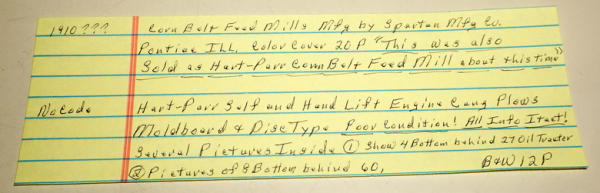 1910??? Corn Belt Feed Mills Mfg by Spartan Mfg Co.
Pontiac ILL, Color Cover 20 P "This was also
Sold as Hart-Parr Corn Belt Feed Mill about this time"
No Code Hart-Parr Self and Hand Lift Engine Gang Plows
Moldboard & Disc Type Poor Condition! All Info Itact!
Several Pictures Inside ① Show 4 Bottom behind 27 Oil Tractor
② Pictures of 8 Bottom behind 60, B&W 12 P